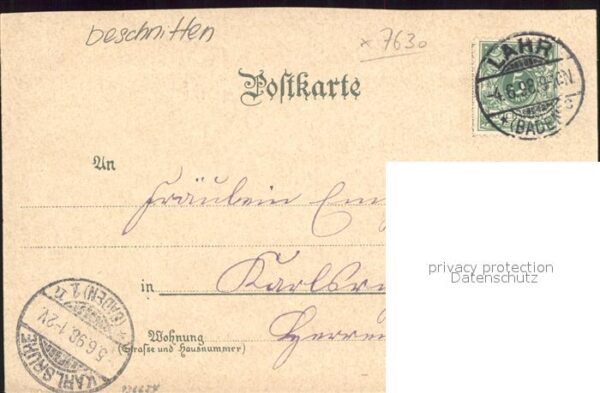 beschnitten
x 7630
LAHR
-4.6.98.9-10N.
* (BADEN) c
Postkarte
An
Fräulein Em
privacy protection
Datenschutz
in Karlsr
Wohnung
(Strasse und Hausnummer)
Herren
KARLSRUHE
5.6.98.1-2V
(BADEN) 2.